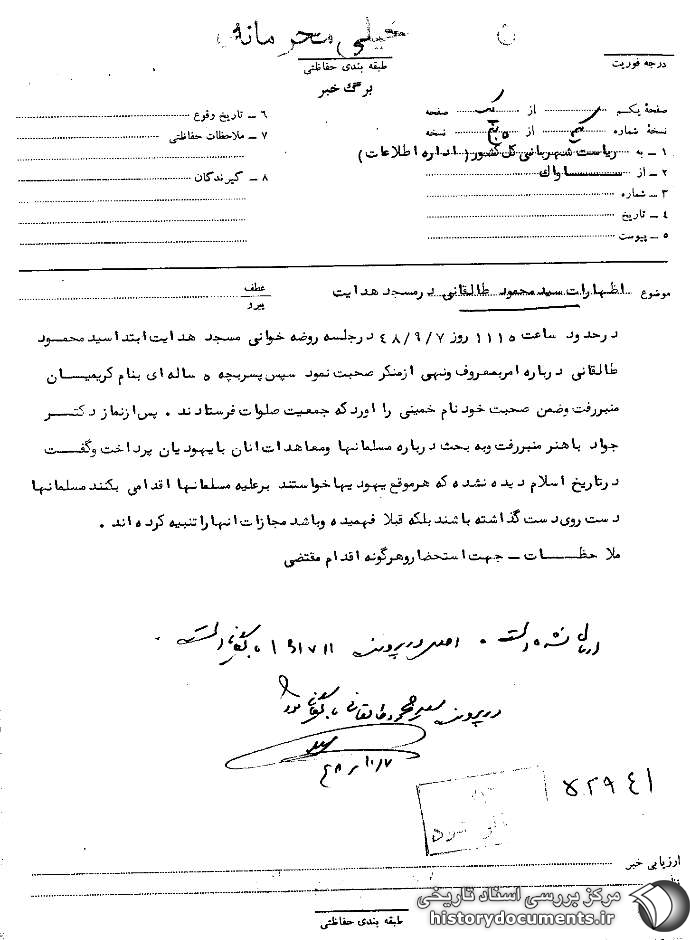 خیلی محرمانه
طبقه بندی حفاظتی
درجه فوریت
برگ خبر
صفحهٔ یکم از یک صفحه
نسخهٔ شماره یکم از پنج نسخه
۱ – به ریاست شهربانی کل کشور ( اداره اطلاعات )
۲ – از ساواک
۳ – شماره
۴ – تاریخ
۵ – پیوست
۶ – تاریخ وقوع
۷ – ملاحظات حفاظتی
۸ – گیرندگان
موضوع اظهارات سید محمود طالقانی در مسجد هدایت
عطف
پیرو
درحدود ساعت ۱۱۱۵ روز ۴۸/۹/۷ درجلسه روضه خوانی مسجد هدایت ابتدا سید محمود
طالقانی درباره امربمعروف ونهی ازمنکر صحبت نمود سپس پسربچه ۵ ساله ای بنام کریمیان
منبررفت وضمن صحبت خود نام خمینی را آورد که جمعیت صلوات فرستادند . پس ازنماز دکتر
جواد باهنر منبررفت وبه بحث درباره مسلمانها ومعاهدات آنان بایهودیان پرداخت وگفت
درتاریخ اسلام دیده نشده که هرموقع یهودیها خواستند برعلیه مسلمانها اقدامی بکنند مسلمانها
دست روی دست گذاشته باشند بلکه قبلا فهمیده وباشد مجازات آنها را تنبیه کرده اند .
ملاحظات – جهت استحضار وهرگونه اقدام مقتضی
ارسال شده است . اصل در پرونده ۱۵۱۷۱۱ بایگانی است .
در پرونده سید محمود طالقانی بایگانی شود
۴۸/۱۰/۷
۵۲۹۴۱
ارزیابی خبر
طبقه بندی حفاظتی
مرکز بررسی اسناد تاریخی
historydocuments.ir